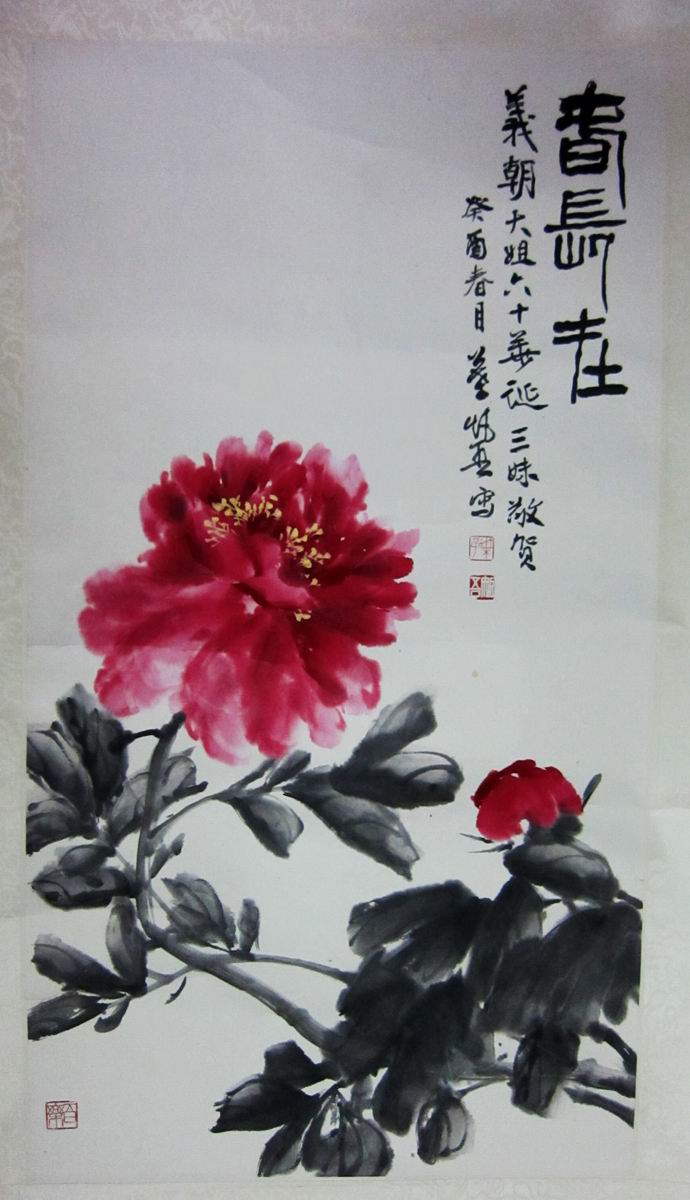 春長在
義朝大姐六十華誕三妹敬賀
癸酉春月葉
寫